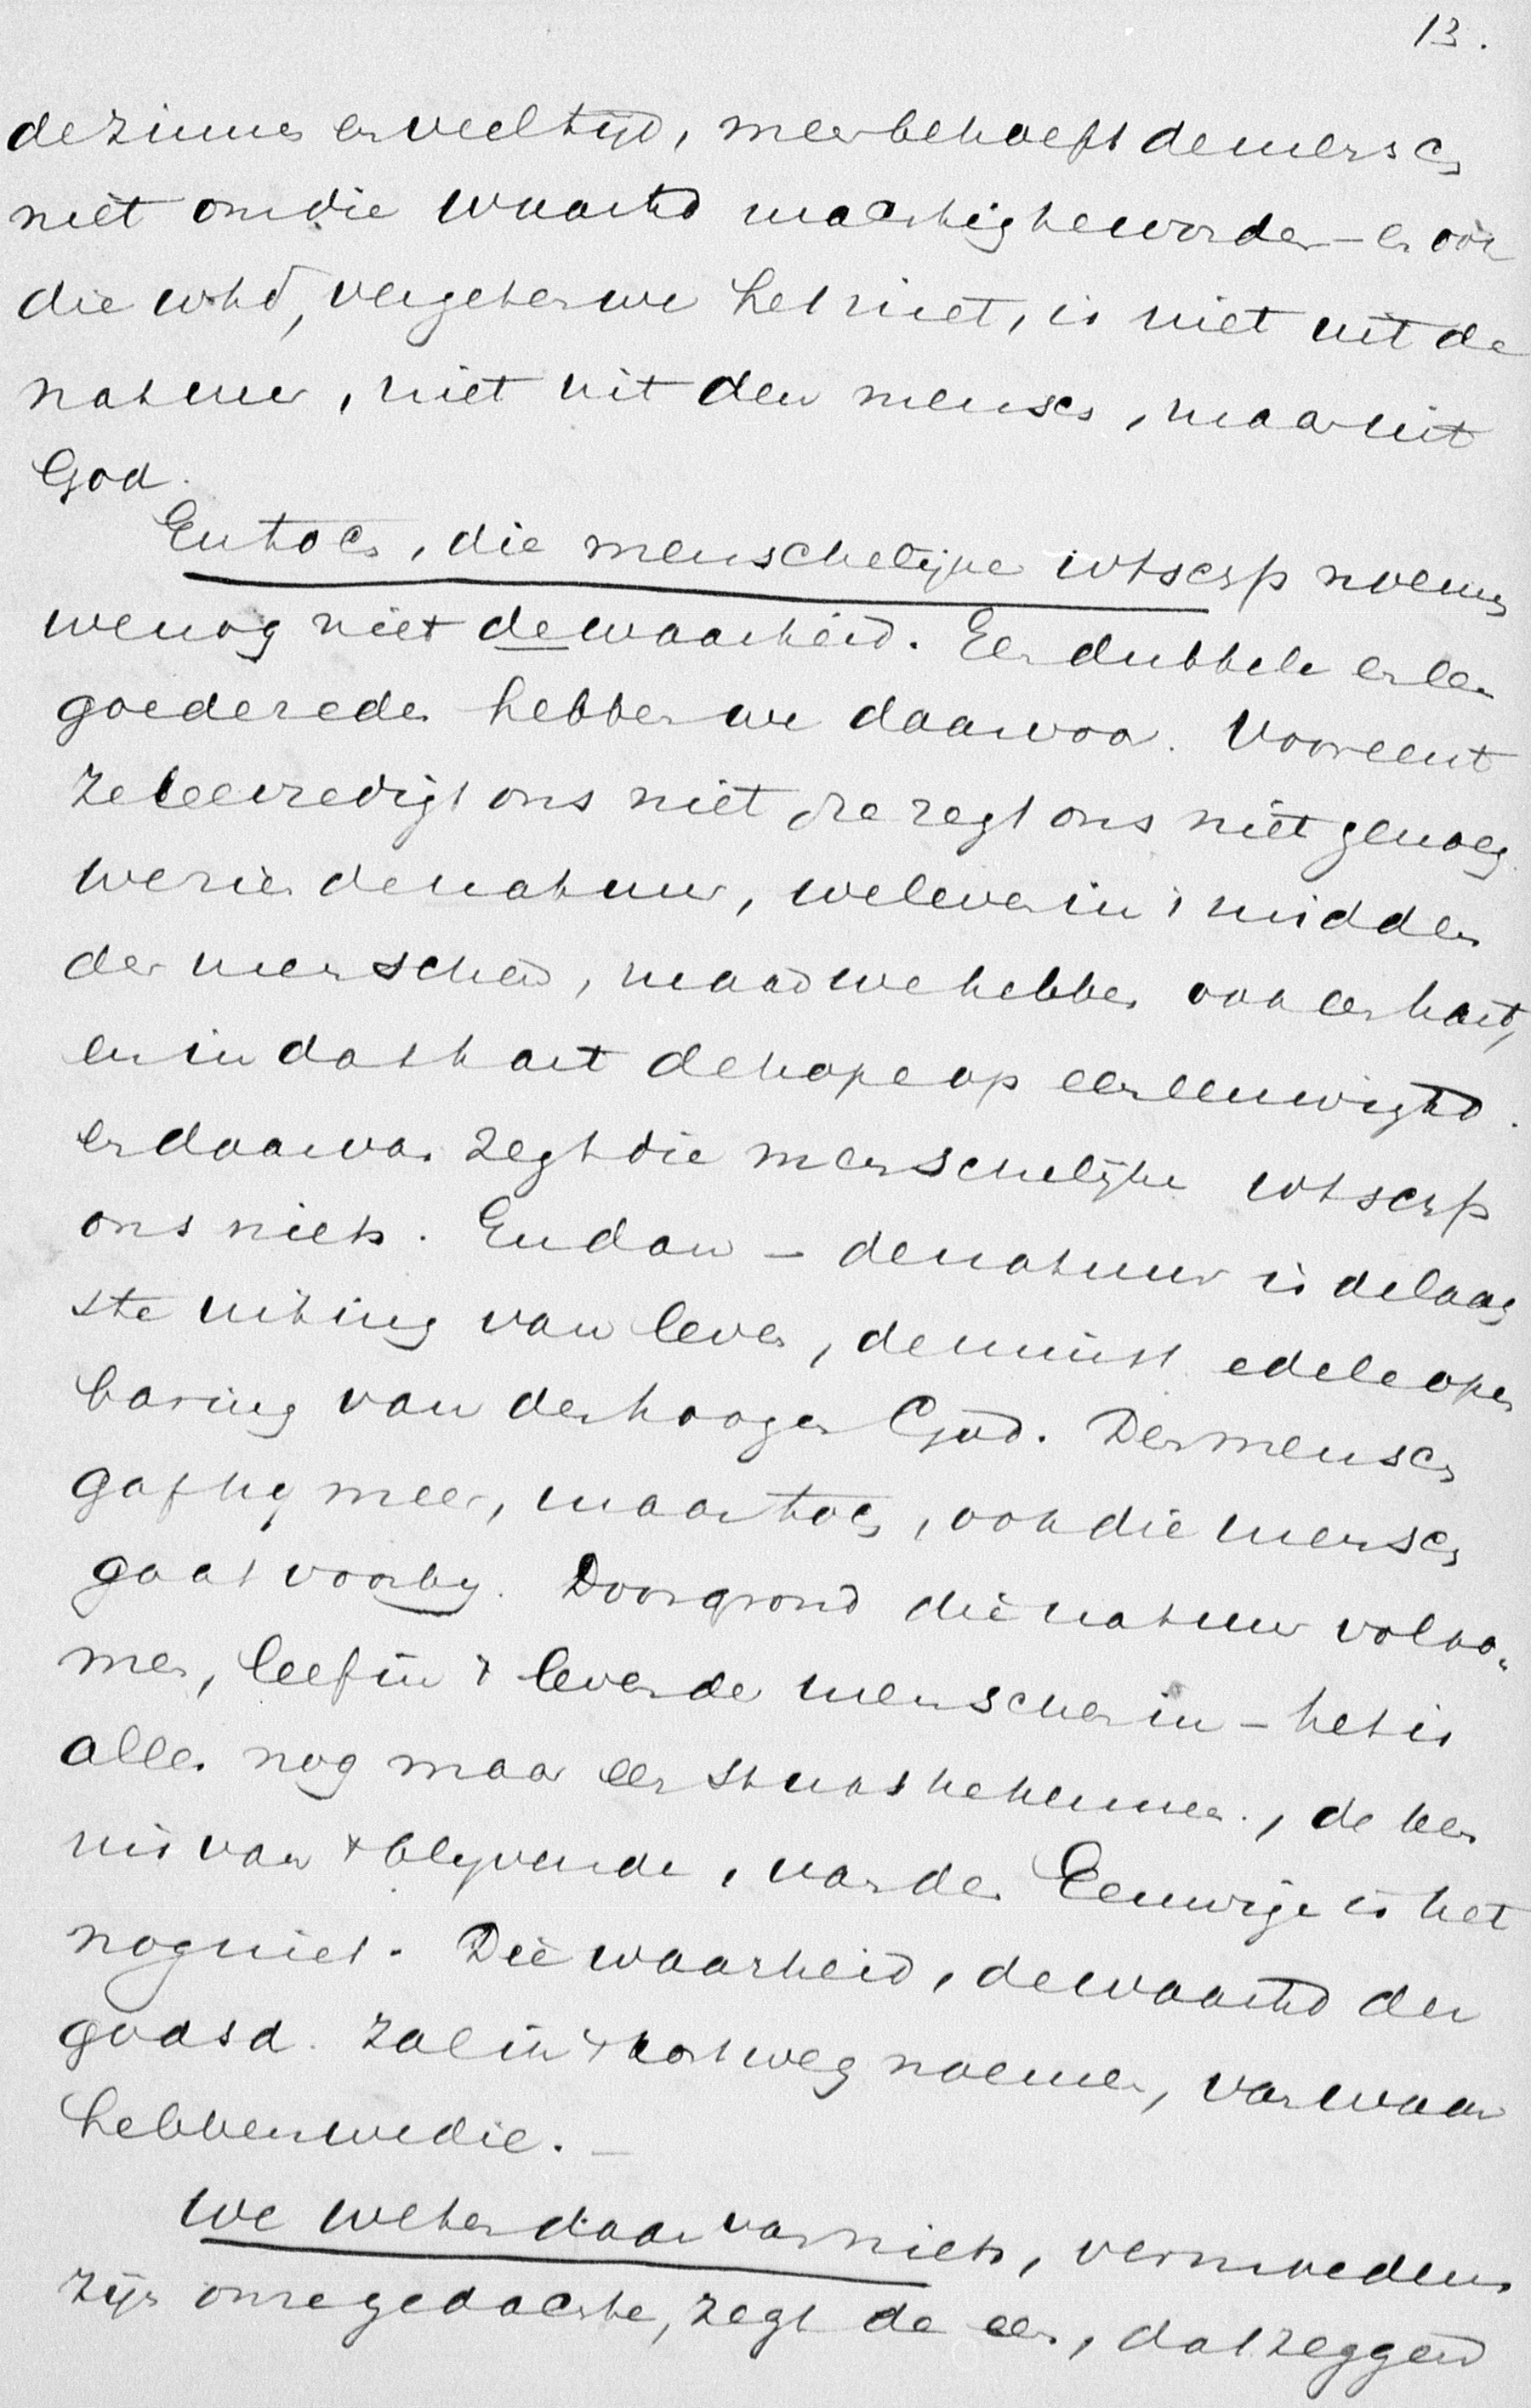 13.
de zinnen en veel tijd, meer behoeft de mensch
niet om die waarhd machtig te worden – en ook
die whd, vergeten we het niet, is niet uit de
natuur, niet uit den mensch, maar uit
God.
En toch, die menschelijke wtschp noemen
we nog niet de waarheid. Een dubbele en een
goede reden hebben we daarvoor. Vooreerst
ze bevredigt ons niet, ze zegt ons niet genoeg.
we zien de natuur, we leven in 't midden
der menschen, maar we hebben ook een hart,
en in dat hart de hope op een eeuwighd.
en daarvan zegt die menschelijke wtschp
ons niets. En dan – de natuur is de laag
ste uiting van leven, de minst edele open
baring van den hoogen God. Den mensch
gaf hij meer, maar toch, ook die mensch
gaat voorby. Doorgrond die natuur volko-
men, leef in 't leven der menschen in – het is
alles nog maar een stuk te kennen, de ken
nis van 't blijvende, van den Eeuwige is het
nog niet. Die waarheid, de waarhd der
godsd. zal ik 't kortweg noemen, van waar
hebben we die. –
We weten daar van niets, vermoedens
zijn onze gedachte, zegt de een, dat zeggen